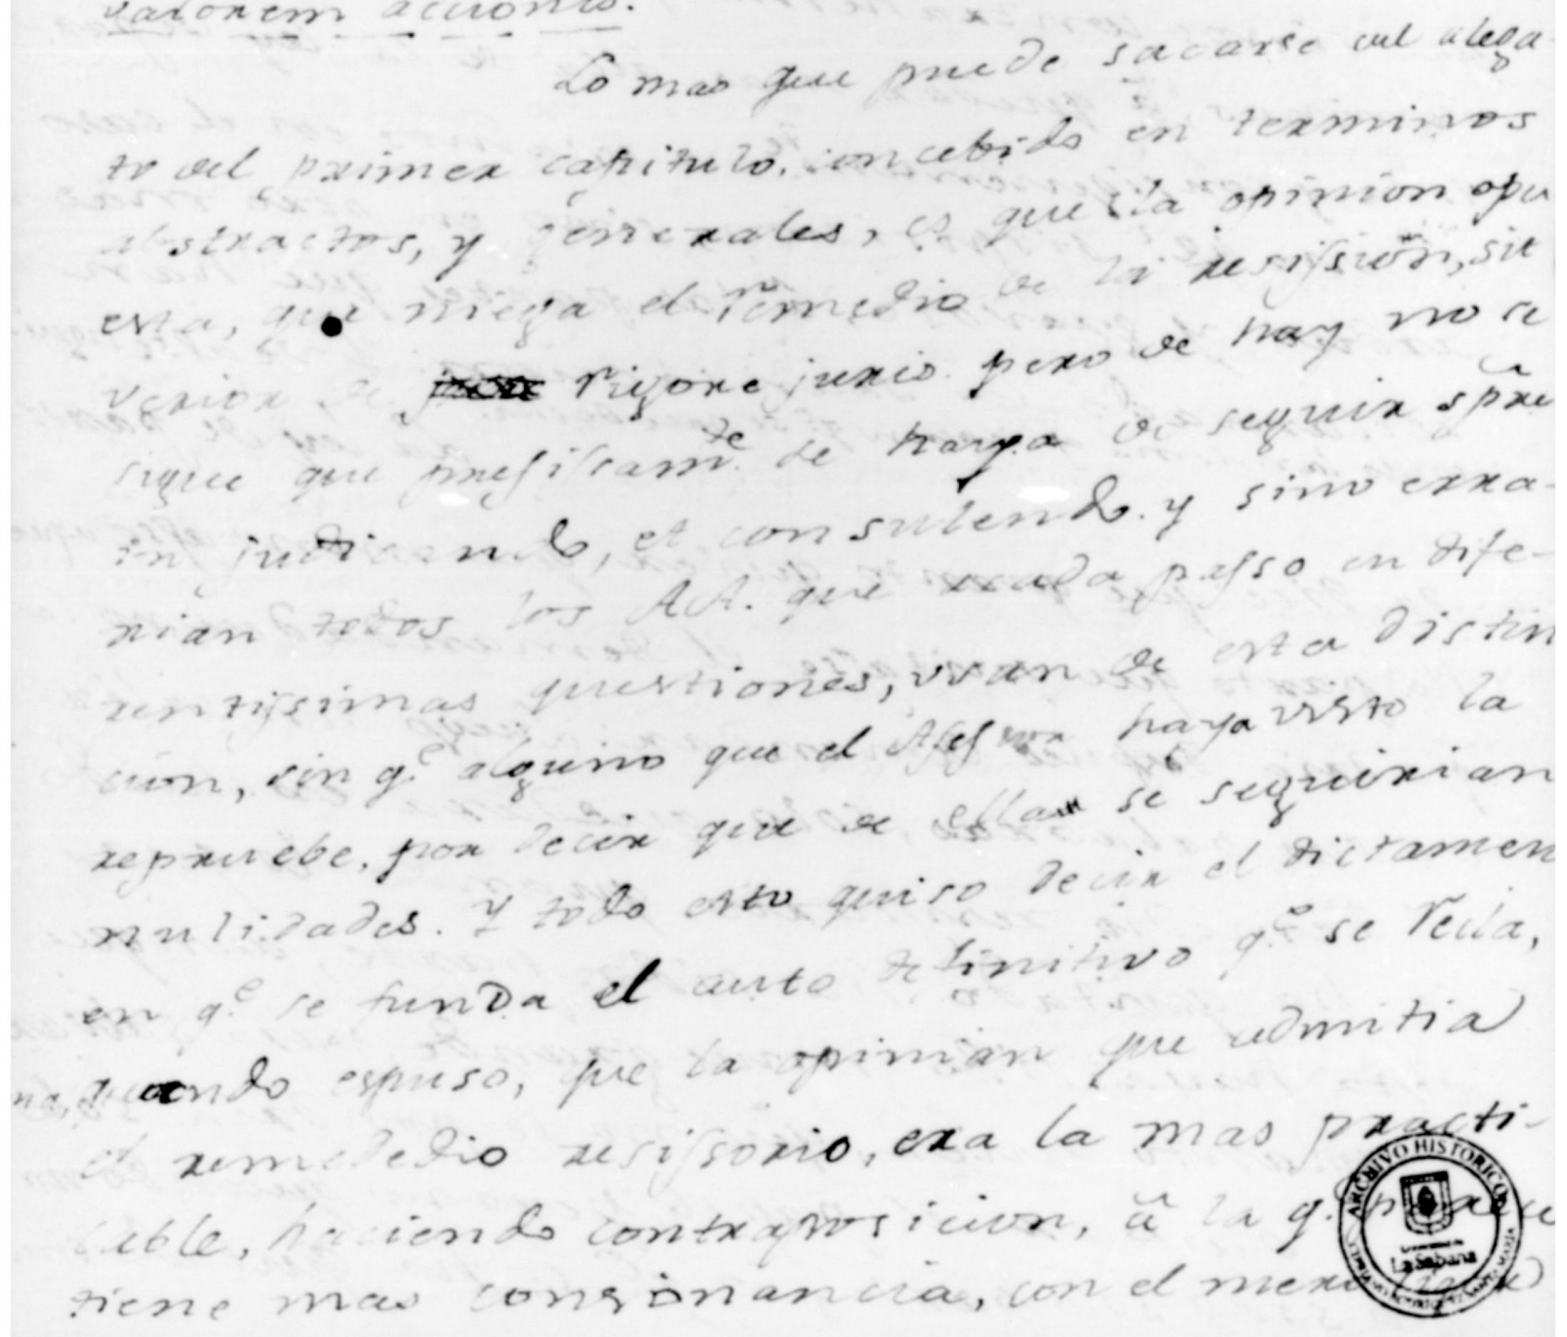 valorem acciones.
Lo mas que puede sacarse del alega-
to del primer capitulo. concebido en terminos
abstractos, y generales, es que la opinion opu
esta, que niega el remedio de la resission, sea
de rigore juris. pero de hay no se
sigue que presisam.te de haya de seguir spre
in judicando, et consulendo. y sino erra-
rian todos los AA. que acada passo en dife-
rentissimas questiones, usan de esta distin
cion, sin q.e alguno que el Assessor haya visto la
repruebe, por decir que de ella se seguirian
nulidades. Y todo esto quiso decir el dictamen
en q.e se funda el auto definitivo q.e se recla,
ma, quando espuso, que la opinion que admitia
el remededio resissorio, era la mas practi-
cable, haciendo contraposicion, á la q.
tiene mas consonancia, con el mero
ARCHIVO HISTORICO
La Sabana